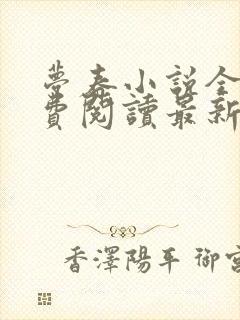 夢春小說全
費閱讀最新
香澤陽平 御宮